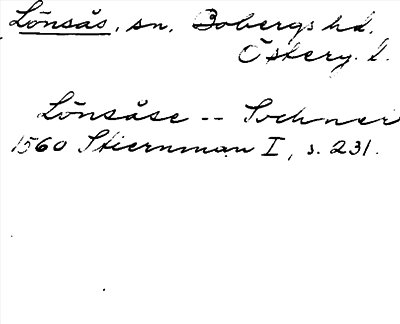 Lönsås, sn. Bobergs hd.
Österg. l.
Lönsåse -- Sochner
1560 Stiernman I, s. 231.